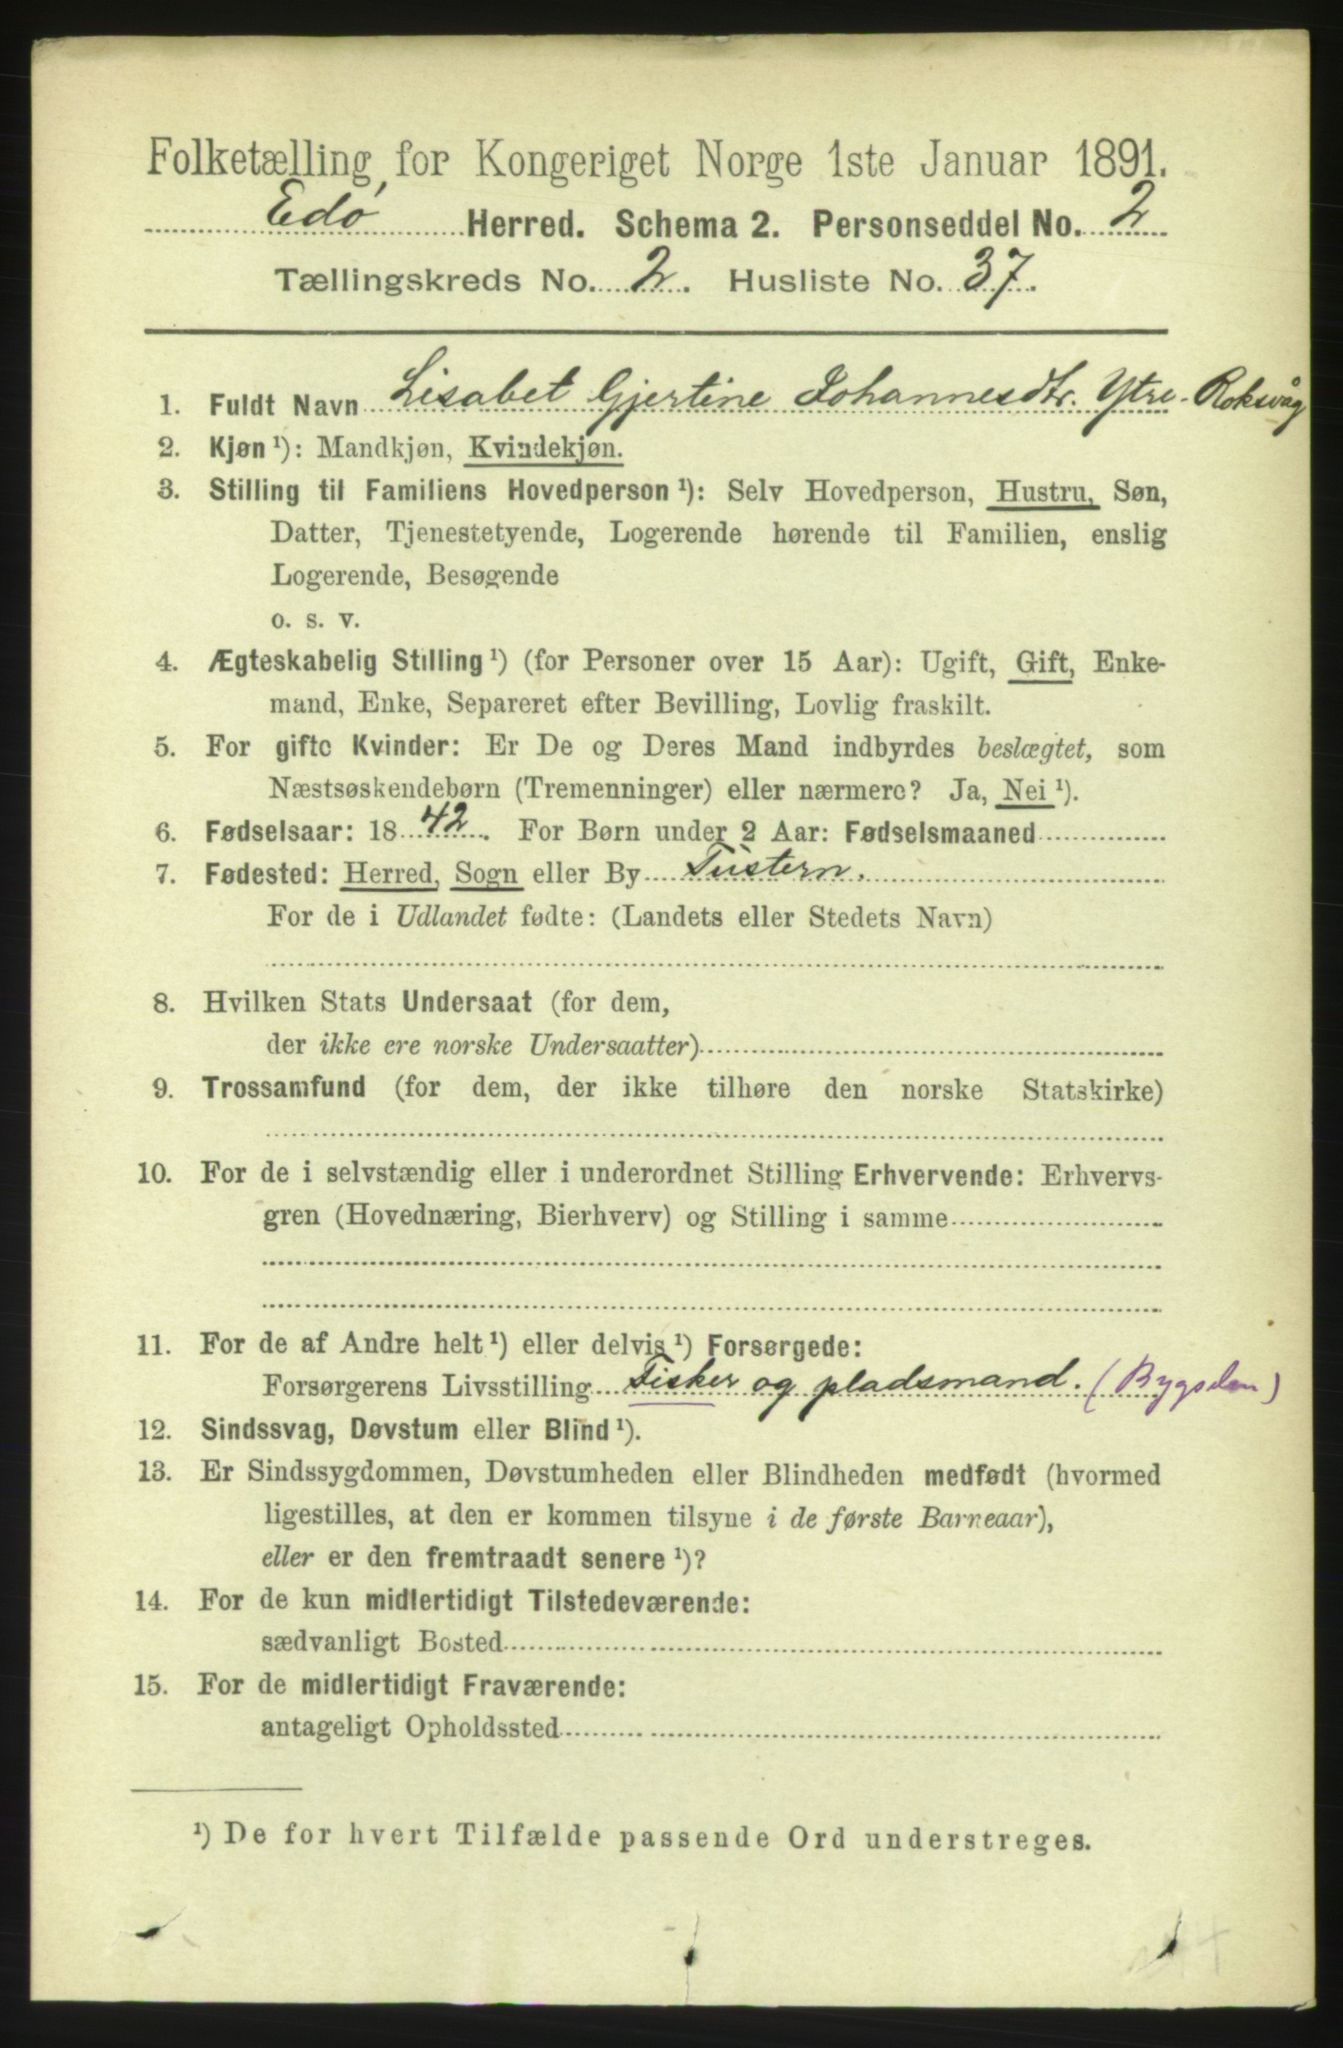 Folketælling for Kongeriget Norge 1ste Januar 1891.
Edø Herred. Schema 2. Personseddel No. 2
Tællingskreds No. 2. Husliste No. 37.
1. Fuldt Navn Lisabet Gjertine Johannesdtr. Ytre-Roksvåg
2. Kjøn ¹): Mandkjøn, Kvindekjøn.
3. Stilling til Familiens Hovedperson ¹): Selv Hovedperson, Hustru, Søn,
Datter, Tjenestetyende, Logerende hørende til Familien, enslig
Logerende, Besøgende
o. s. v.
4. Ægteskabelig Stilling ¹) (for Personer over 15 Aar): Ugift, Gift, Enke-
mand, Enke, Separeret efter Bevilling, Lovlig fraskilt.
5. For gifte Kvinder: Er De og Deres Mand indbyrdes beslægtet, som
Næstsøskendebørn (Tremenninger) eller nærmere? Ja, Nei ¹).
6. Fødselsaar: 1842. For Børn under 2 Aar: Fødselsmaaned
7. Fødested: Herred, Sogn eller By Tustern.
For de i Udlandet fødte: (Landets eller Stedets Navn)
8. Hvilken Stats Undersaat (for dem,
der ikke ere norske Undersaatter)
9. Trossamfund (for dem, der ikke tilhøre den norske Statskirke)
10. For de i selvstændig eller i underordnet Stilling Erhvervende: Erhvervs-
gren (Hovednæring, Bierhverv) og Stilling i samme
11. For de af Andre helt ¹) eller delvis ¹) Forsørgede:
Forsørgerens Livsstilling Fisker og pladsmand. (Bygselm)
12. Sindssvag, Døvstum eller Blind ¹).
13. Er Sindssygdommen, Døvstumheden eller Blindheden medfødt (hvormed
ligestilles, at den er kommen tilsyne i de første Barneaar),
eller er den fremtraadt senere ¹)?
14. For de kun midlertidigt Tilstedeværende:
sædvanligt Bosted
15. For de midlertidigt Fraværende:
antageligt Opholdssted
¹) De for hvert Tilfælde passende Ord understreges.